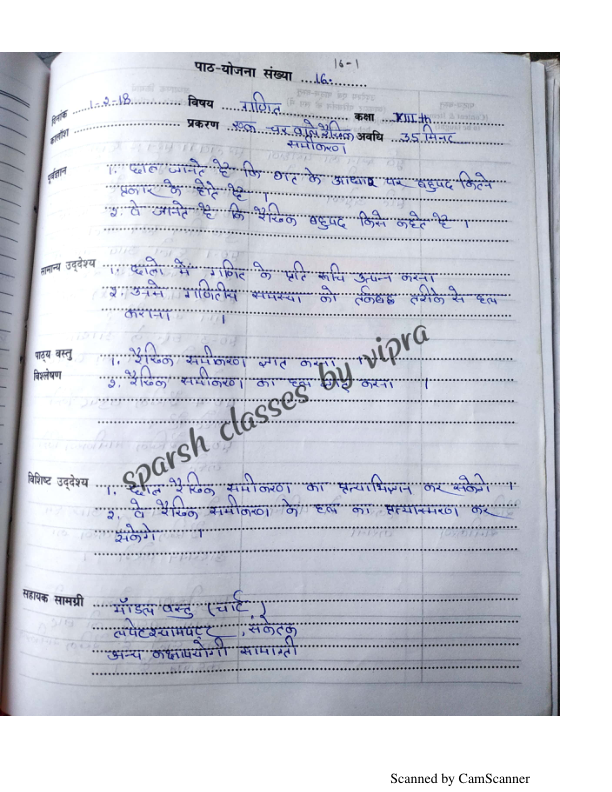 16-1
पाठ-योजना संख्या ....16...........
दिनांक ...1-2-18........... विषय ....गणित............ कक्षा ...VIII th
कालांश............................ प्रकरण ..एक चर वाले रैखिक अवधि ...35 मिनट....
समीकरण
पूर्वज्ञान 1. छात्र जानते है कि घात के आधार पर बहुपद कितने
प्रकार के होते है ।
2. वे जानते है कि रैखिक बहुपद किसे कहते है ।
सामान्य उद्देश्य 1. छात्रो में गणित के प्रति रूचि उत्पन्न करना
2. उनमे गणितीय समस्या को तर्कबद्ध तरीके से हल
कराना ।
पाठ्य वस्तु 1. रैखिक समीकरण ज्ञात करना ।
विश्लेषण 2. रैखिक समीकरण का हल करना ।
sparsh classes by vipra
विशिष्ट उद्देश्य 1. छात्र रैखिक समीकरण का प्रत्याभिज्ञान कर सकेगे ।
2. वे रैखिक समीकरण के हल का प्रत्यास्मरण कर
सकेगे ।
सहायक सामग्री मॉडल वस्तु (चार्ट)
लपेटश्यामपट्ट, संकेतक
अन्य कक्षापयोगी सामाग्री
Scanned by CamScanner